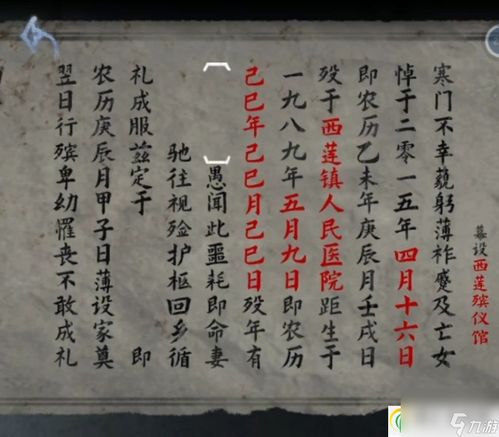 设西莲殡仪馆
寒门不幸藐躬薄祚蹙及亡女
悼于二零一五年四月十六日
即农历乙未年庚辰月壬戌日
殁于西莲镇人民医院距生于
一九八九年五月九日即农历
己巳年己巳月己巳日殁年有
[ ]愚闻此噩耗即命妻
驰往视殓护柩回乡循
礼成服兹定于 即
农历庚辰月甲子日薄设家奠
翌日行殡卑幼惧丧不敢成礼
九游